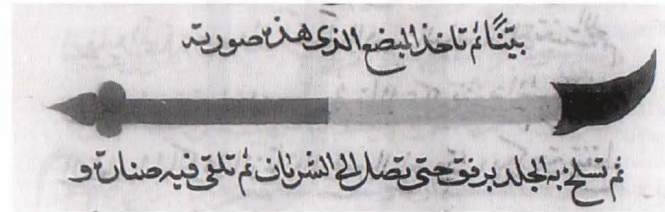 بيّنًا ثم تاخذ المبضع الذى هذه صورته
ثم تسلخ به الجلد برفق حتى تصل الى الشريان ثم تلقى فيه صنارة و